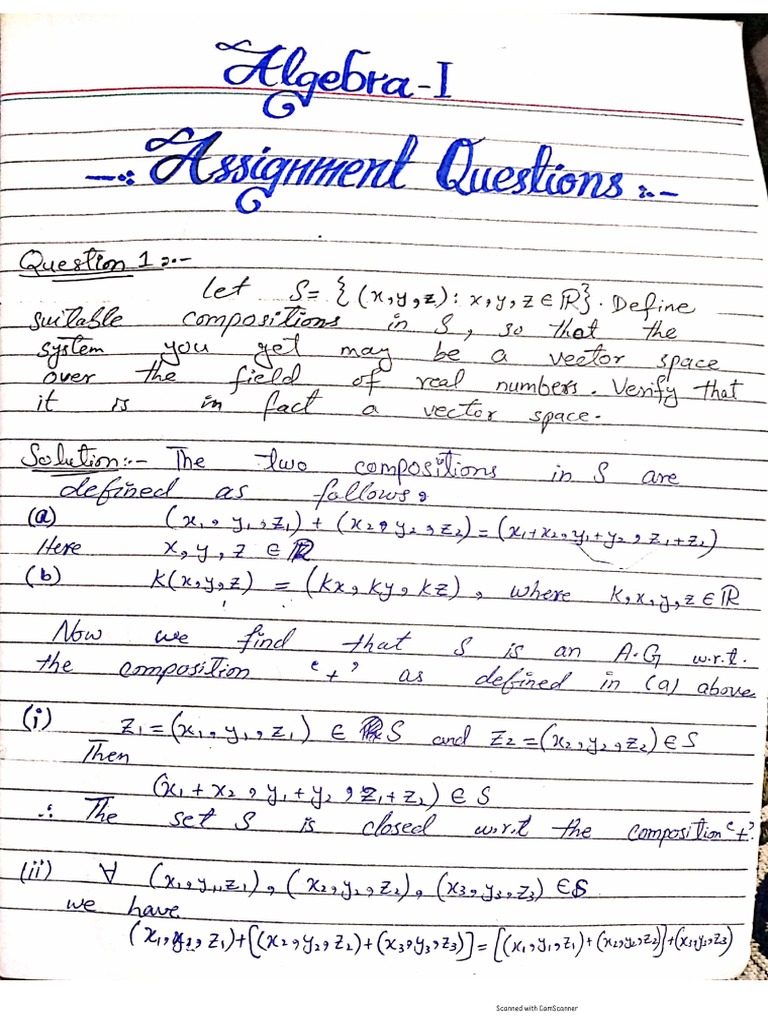 Algebra-I
-: Assignment Questions :-
Question 1:-
Let S= {(x,y,z): x,y,z ∈ ℝ}. Define
suitable compositions in S, so that the
system you get may be a vector space
over the field of real numbers. Verify that
it is in fact a vector space.
Solution:- The two compositions in S are
defined as follows,
(a) (x₁, y₁, z₁) + (x₂, y₂, z₂) = (x₁+x₂, y₁+y₂, z₁+z₂)
Here x, y, z ∈ ℝ
(b) K(x,y,z) = (kx, ky, kz), where k,x,y,z ∈ ℝ
Now we find that S is an A.G w.r.t.
the composition '+' as defined in (a) above
(i) z₁=(x₁, y₁, z₁) ∈ S and z₂=(x₂, y₂, z₂) ∈ S
Then
(x₁+x₂, y₁+y₂, z₁+z₂) ∈ S
∴ The set S is closed w.r.t the composition '+'.
(ii) ∀ (x₁,y₁,z₁), (x₂,y₂,z₂), (x₃,y₃,z₃) ∈ S
we have
(x₁,y₁,z₁)+[(x₂,y₂,z₂)+(x₃,y₃,z₃)] = [(x₁,y₁,z₁)+(x₂,y₂,z₂)]+(x₃,y₃,z₃)
Scanned with CamScanner